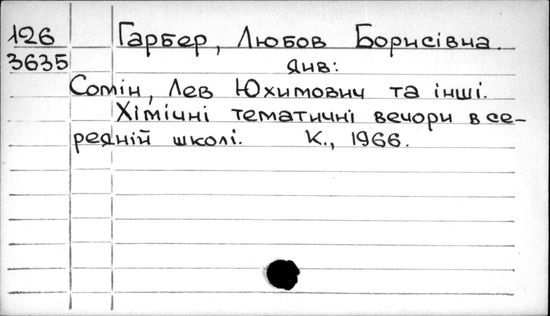 126 Гарбер, Любов Борисівна.
3635 див:
Сомін, Лев Юхимович та інші.
Хімічні тематичні вечори в се-
редній школі. К., 1966.